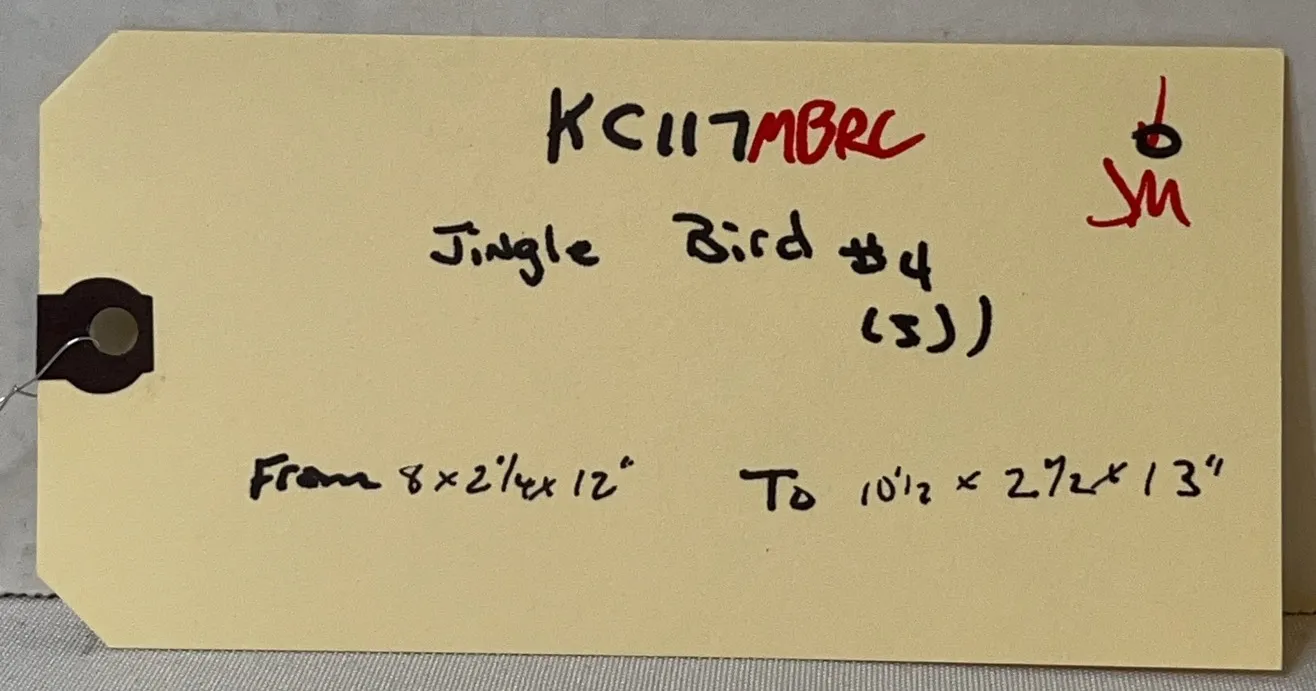 KC117MBRC
JM
Jingle Bird #4
(5))
From 8 x 2 1/4 x 12" To 10 1/2 x 2 1/2 x 13"